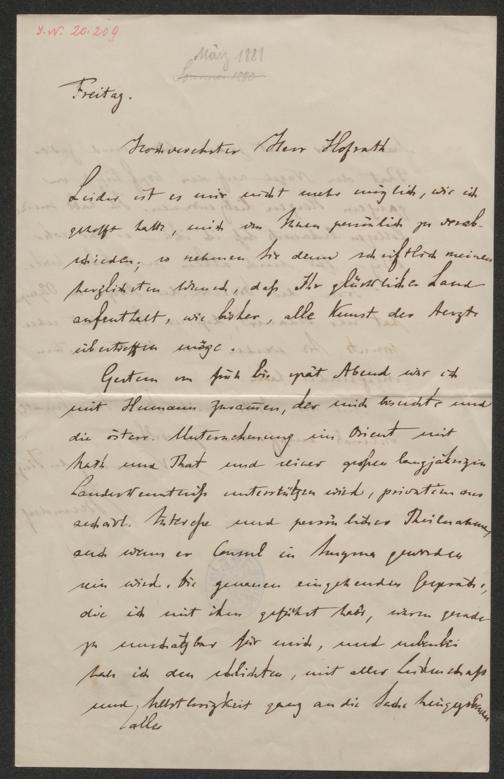 J.N. 20.209
März 1881
Sommer 1880
Freitag.
Hochverehrter Herr Hofrath
Leider ist es mir nicht mehr möglich, wie ich
gehofft hatte, mich von Ihnen persönlich zu verab-
schieden; so nehmen Sie denn schriftlich meinen
herzlichsten Wunsch, daß Ihr glücklicher Land
aufenthalt, wie bisher, alle Kunst der Aerzte
übertreffen möge.
Gestern von früh bis spät Abend war ich
mit Humann zusammen, der mich besuchte und
die österr. Unternehmung im Orient mit
Rath und That und seiner großen langjährigen
Landeskenntniß unterstützen wird, privatim aus
archäol. Interesse und persönlicher Theilnahme,
auch wenn er Consul in Smyrna geworden
sein wird. Die genauen eingehenden Gespräche,
die ich mit ihm geführt habe, waren gerade
zu unschätzbar für mich, und nebenbei
habe ich den schlichten, mit aller Leidenschaft
und Selbstlosigkeit ganz an die Sache hingegebenen
aller